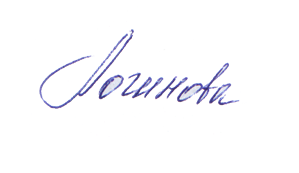 Логинова